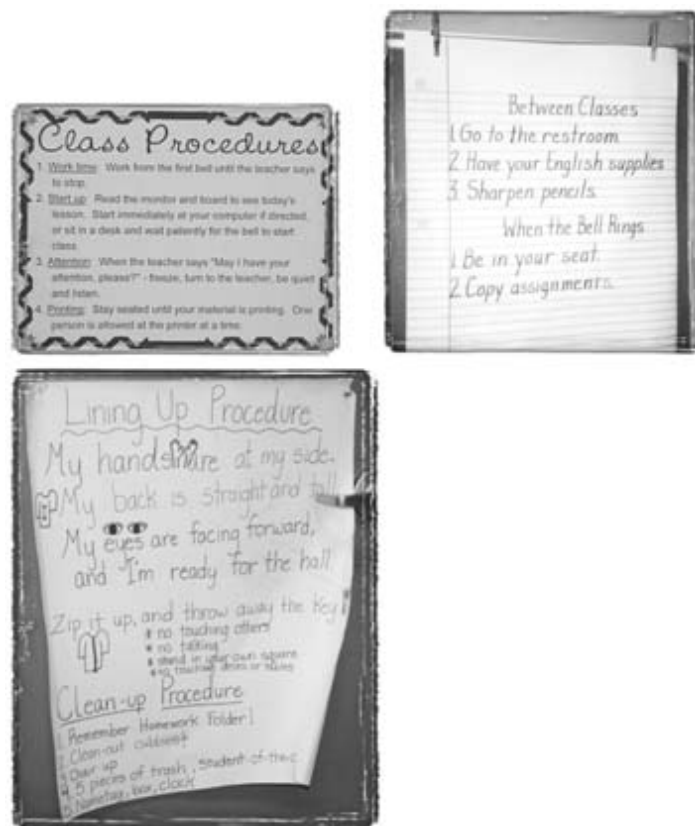 Class Procedures
1. Work time: Work from the first bell until the teacher says
to stop.
2. Start up: Read the monitor and board to see today's
lesson. Start immediately at your computer if directed,
or sit in a desk and wait patiently for the bell to start
class.
3. Attention: When the teacher says "May I have your
attention, please?" - freeze, turn to the teacher, be quiet
and listen.
4. Printing: Stay seated until your material is printing. One
person is allowed at the printer at a time.
Between Classes
1. Go to the restroom
2. Have your English supplies
3. Sharpen pencils.
When the Bell Rings
1. Be in your seat.
2. Copy assignments.
Lining Up Procedure
My hands are at my side.
My back is straight and tall
My eyes are facing forward,
and I'm ready for the hall
Zip it up, and throw away the key
* no touching others
* no talking
* stand in your own square
* no touching desks or
Clean-up Procedure
1. Remember Homework Folder!
2. Clean-out cubbies
3. up
4. 5 pieces of trash, student-of-the-
5. Nametag, box, clock